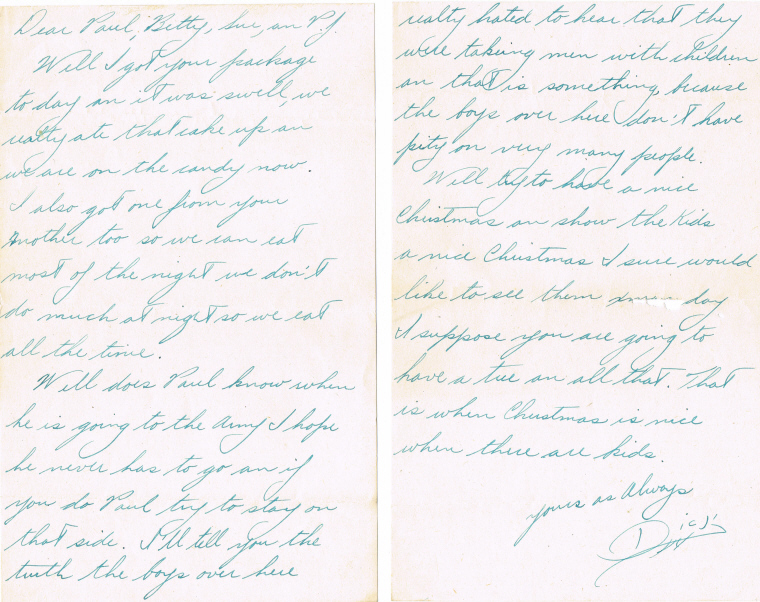 Dear Paul, Betty, Sue, an P.J.
Will I got your package
to day an it was swell, we
really ate that cake up an
we are on the candy now.
I also got one from your
Mother too so we can eat
most of the night we don't
do much at night so we eat
all the time.
Will does Paul know when
he is going to the Army I hope
he never has to go an if
you do Paul try to stay on
that side. I'll tell you the
truth the boys over here
really hated to hear that they
were taking men with children
an that is something, because
the boys over here don't have
pity on very many people.
Will try to have a nice
Christmas an show the kids
a nice Christmas I sure would
like to see them day
I suppose you are going to
have a tree an all that. That
is when Christmas is nice
when there are kids.
yours as Always